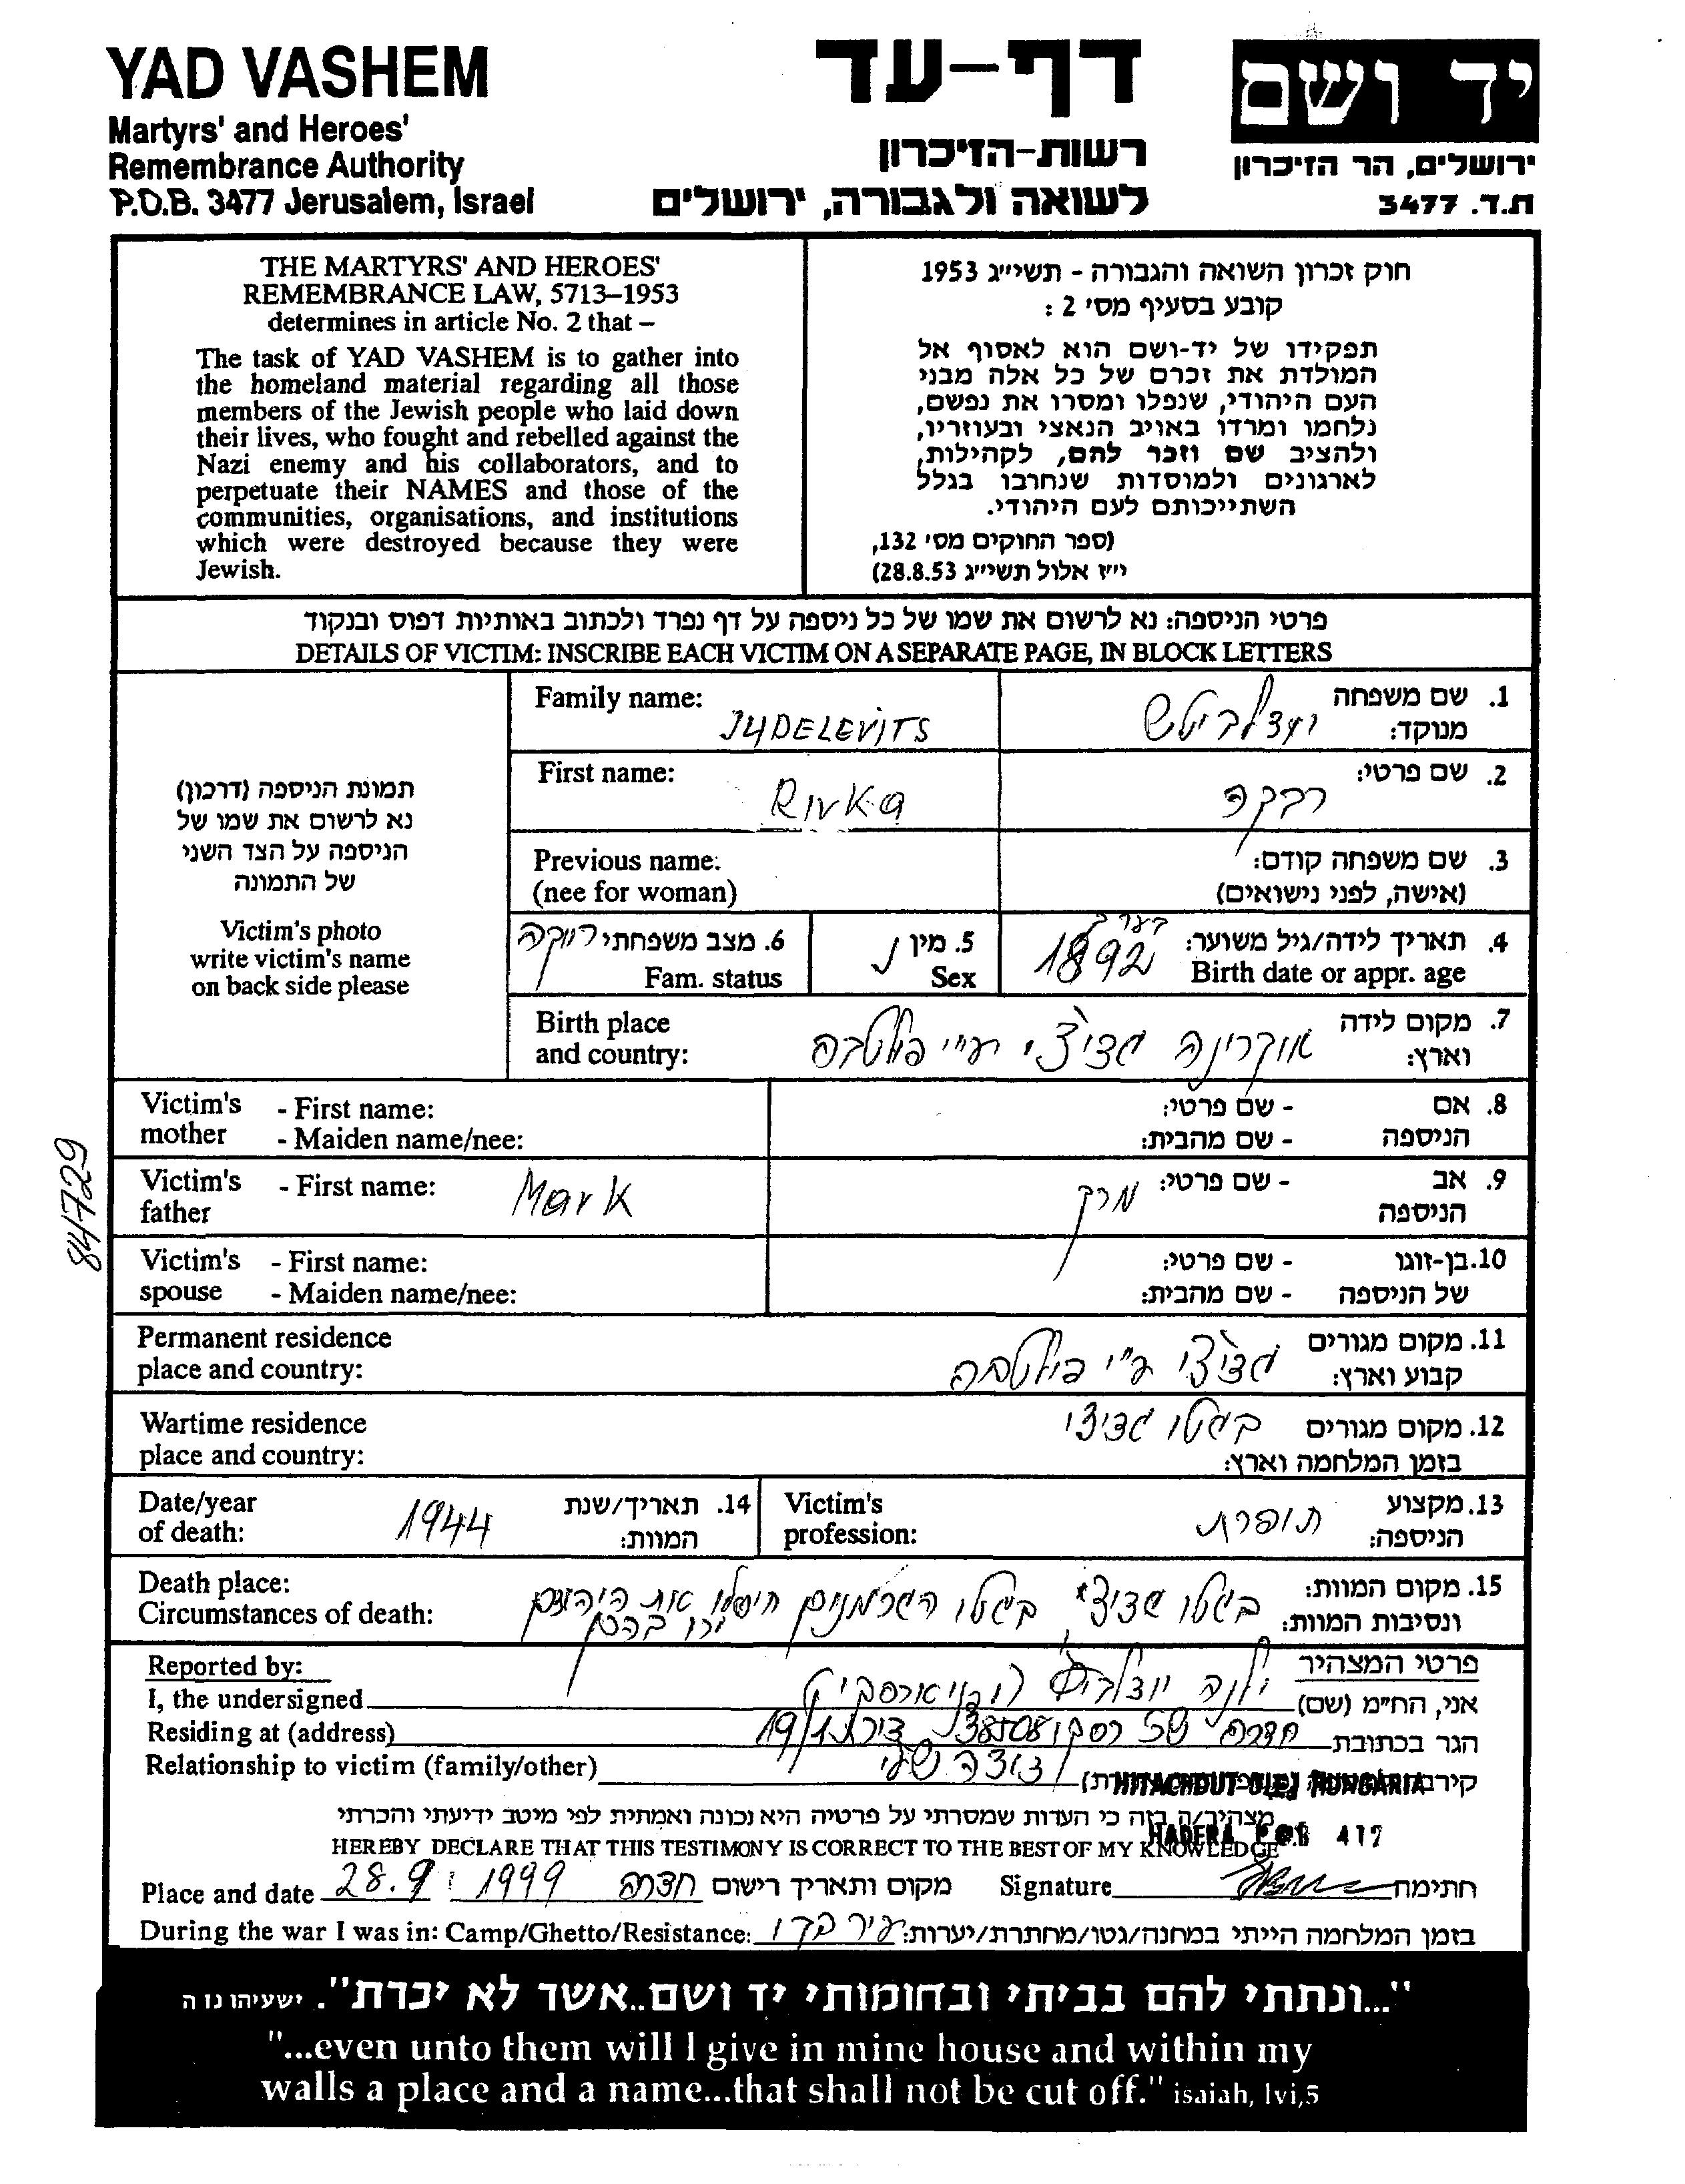 YAD VASHEM
Martyrs' and Heroes'
Remembrance Authority
P.O.B. 3477 Jerusalem, Israel
דף-עד
רשות-הזיכרון
לשואה ולגבורה, ירושלים
יד ושם
ירושלים, הר הזיכרון
ת.ד. 3477
THE MARTYRS' AND HEROES'
REMEMBRANCE LAW, 5713–1953
determines in article No. 2 that –
The task of YAD VASHEM is to gather into
the homeland material regarding all those
members of the Jewish people who laid down
their lives, who fought and rebelled against the
Nazi enemy and his collaborators, and to
perpetuate their NAMES and those of the
communities, organisations, and institutions
which were destroyed because they were
Jewish.
חוק זכרון השואה והגבורה - תשי״ג 1953
קובע בסעיף מס' 2 :
תפקידו של יד-ושם הוא לאסוף אל
המולדת את זכרם של כל אלה מבני
העם היהודי, שנפלו ומסרו את נפשם,
נלחמו ומרדו באויב הנאצי ובעוזריו,
ולהציב שם וזכר להם, לקהילות,
לארגונים ולמוסדות שנחרבו בגלל
השתייכותם לעם היהודי.
(ספר החוקים מס' 132,
י״ז אלול תשי״ג 28.8.53)
פרטי הניספה: נא לרשום את שמו של כל ניספה על דף נפרד ולכתוב באותיות דפוס ובנקוד
DETAILS OF VICTIM: INSCRIBE EACH VICTIM ON A SEPARATE PAGE, IN BLOCK LETTERS
תמונת הניספה (דרכון)
נא לרשום את שמו של
הניספה על הצד השני
של התמונה
Victim's photo
write victim's name
on back side please
Family name: JUDELEVITS
1. שם משפחה
מנוקד:
First name: Rivka
2. שם פרטי: רבקה
Previous name:
(nee for woman)
3. שם משפחה קודם:
(אישה, לפני נישואים)
4. תאריך לידה/גיל משוער: 1892
Birth date or appr. age
5. מין נ
Sex
6. מצב משפחתי רווקה
Fam. status
Birth place
and country:
7. מקום לידה
וארץ: אוקרינה פולטבה
Victim's mother - First name:
- Maiden name/nee:
8. אם הניספה - שם פרטי:
- שם מהבית:
Victim's father - First name: Mark
9. אב הניספה - שם פרטי: מרק
Victim's spouse - First name:
- Maiden name/nee:
10. בן-זוגו של הניספה - שם פרטי:
- שם מהבית:
Permanent residence
place and country:
11. מקום מגורים
קבוע וארץ: פולטבה
Wartime residence
place and country:
12. מקום מגורים
בזמן המלחמה וארץ: בגטו
Date/year
of death: 1944
14. תאריך/שנת
המוות:
Victim's
profession:
13. מקצוע
הניספה: תופרת
Death place:
Circumstances of death:
15. מקום המוות:
ונסיבות המוות: בגטו בגטו הגרמנים חיסלו את היהודים
Reported by:
I, the undersigned
Residing at (address)
Relationship to victim (family/other)
פרטי המצהיר
אני, הח״מ (שם)
הגר בכתובת חדרה
דודה שלי
HITACHDUT OLEJ HUNGARIA
HADERA P.O.B 417
מצהיר/ה בזה כי העדות שמסרתי על פרטיה היא נכונה ואמתית לפי מיטב ידיעתי והכרתי
HEREBY DECLARE THAT THIS TESTIMONY IS CORRECT TO THE BEST OF MY KNOWLEDGE
Place and date 28.9.1999 חדרה מקום ותאריך רישום
Signature חתימה
During the war I was in: Camp/Ghetto/Resistance:
בזמן המלחמה הייתי במחנה/גטו/מחתרת/יערות:
84729
"...ונתתי להם בביתי ובחומותי יד ושם..אשר לא יכרת". ישעיהו נו ה
"...even unto them will I give in mine house and within my
walls a place and a name...that shall not be cut off." isaiah, lvi,5